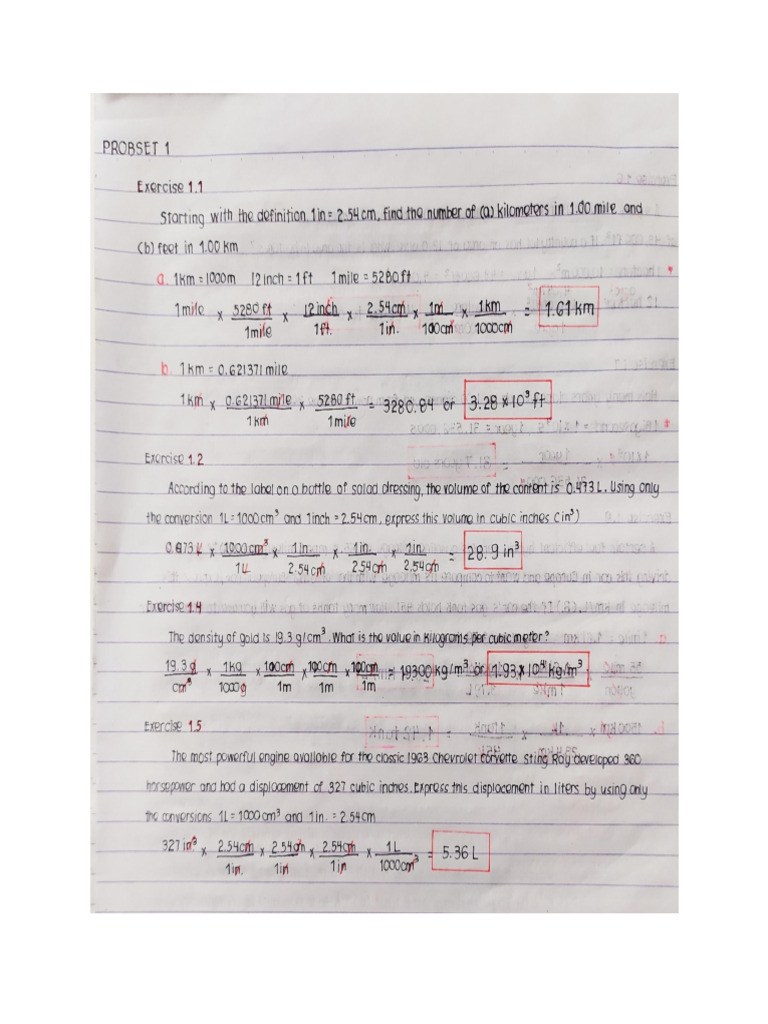 PROBSET 1
Exercise 1.1
Starting with the definition 1in = 2.54cm, find the number of (a) kilometers in 1.00 mile and
(b) feet in 1.00 km
a. 1km = 1000m 12inch = 1ft 1mile = 5280ft
1mile x 5280 ft / 1mile x 12inch / 1ft. x 2.54cm / 1in. x 1m / 100cm x 1km / 1000m = 1.61 km
b. 1km = 0.621371 mile
1km x 0.621371 mile / 1km x 5280 ft / 1mile = 3280.84 or 3.28 x 10³ ft
Exercise 1.2
According to the label on a bottle of salad dressing, the volume of the content is 0.473 L. Using only
the conversion 1L = 1000cm³ and 1inch = 2.54cm, express this volume in cubic inches (in³)
0.473 L x 1000cm³ / 1L x 1in / 2.54cm x 1in. / 2.54cm x 1in. / 2.54cm = 28.9 in³
Exercise 1.4
The density of gold is 19.3 g/cm³. What is the value in kilograms per cubic meter?
19.3 g / cm³ x 1kg / 1000g x 100cm / 1m x 100cm / 1m x 100cm / 1m = 19300 kg/m³ or 1.93 x 10⁴ kg/m³
Exercise 1.5
The most powerful engine available for the classic 1963 Chevrolet corvette Sting Ray developed 360
horsepower and had a displacement of 327 cubic inches. Express this displacement in liters by using only
the conversions 1L = 1000cm³ and 1in. = 2.54cm
327 in³ x 2.54cm / 1in. x 2.54cm / 1in x 2.54cm / 1in x 1L / 1000cm³ = 5.36 L